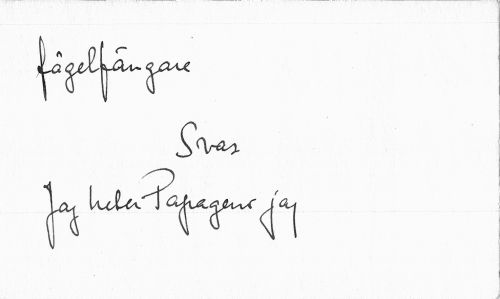 fågelfångare
Svar
Jag heter Papageno jag